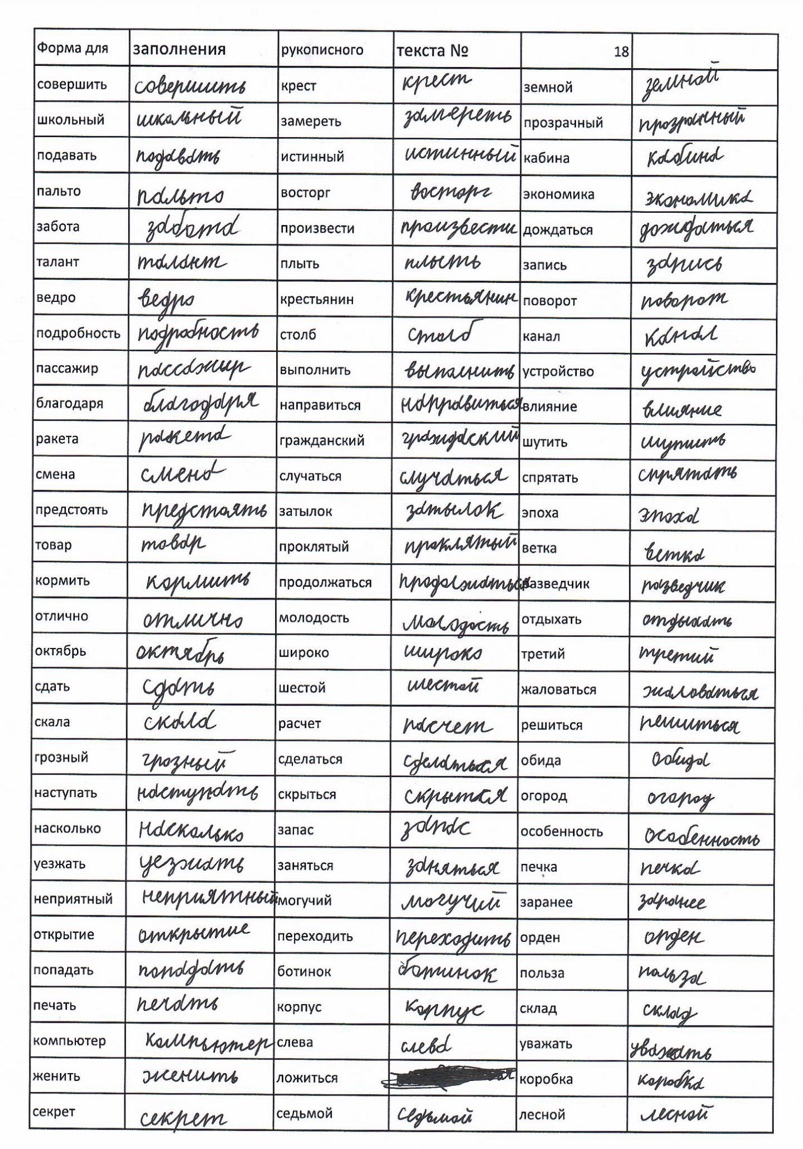 Форма для заполнения рукописного текста № 18
совершить совершить крест крест земной земной
школьный школьный замереть замереть прозрачный прозрачный
подавать подавать истинный истинный кабина кабина
пальто пальто восторг восторг экономика экономика
забота забота произвести произвести дождаться дождаться
талант талант плыть плыть запись запись
ведро ведро крестьянин крестьянин поворот поворот
подробность подробность столб столб канал канал
пассажир пассажир выполнить выполнить устройство устройство
благодаря благодаря направиться направиться влияние влияние
ракета ракета гражданский гражданский шутить шутить
смена смена случаться случаться спрятать спрятать
предстоять предстоять затылок затылок эпоха эпоха
товар товар проклятый проклятый ветка ветка
кормить кормить продолжаться продолжаться разведчик разведчик
отлично отлично молодость молодость отдыхать отдыхать
октябрь октябрь широко широко третий третий
сдать сдать шестой шестой жаловаться жаловаться
скала скала расчет расчет решиться решиться
грозный грозный сделаться сделаться обида обида
наступать наступать скрыться скрыться огород огород
насколько насколько запас запас особенность особенность
уезжать уезжать заняться заняться печка печка
неприятный неприятный могучий могучий заранее заранее
открытие открытие переходить переходить орден орден
попадать попадать ботинок ботинок польза польза
печать печать корпус корпус склад склад
компьютер компьютер слева слева уважать уважать
женить женить ложиться коробка коробка
секрет секрет седьмой седьмой лесной лесной